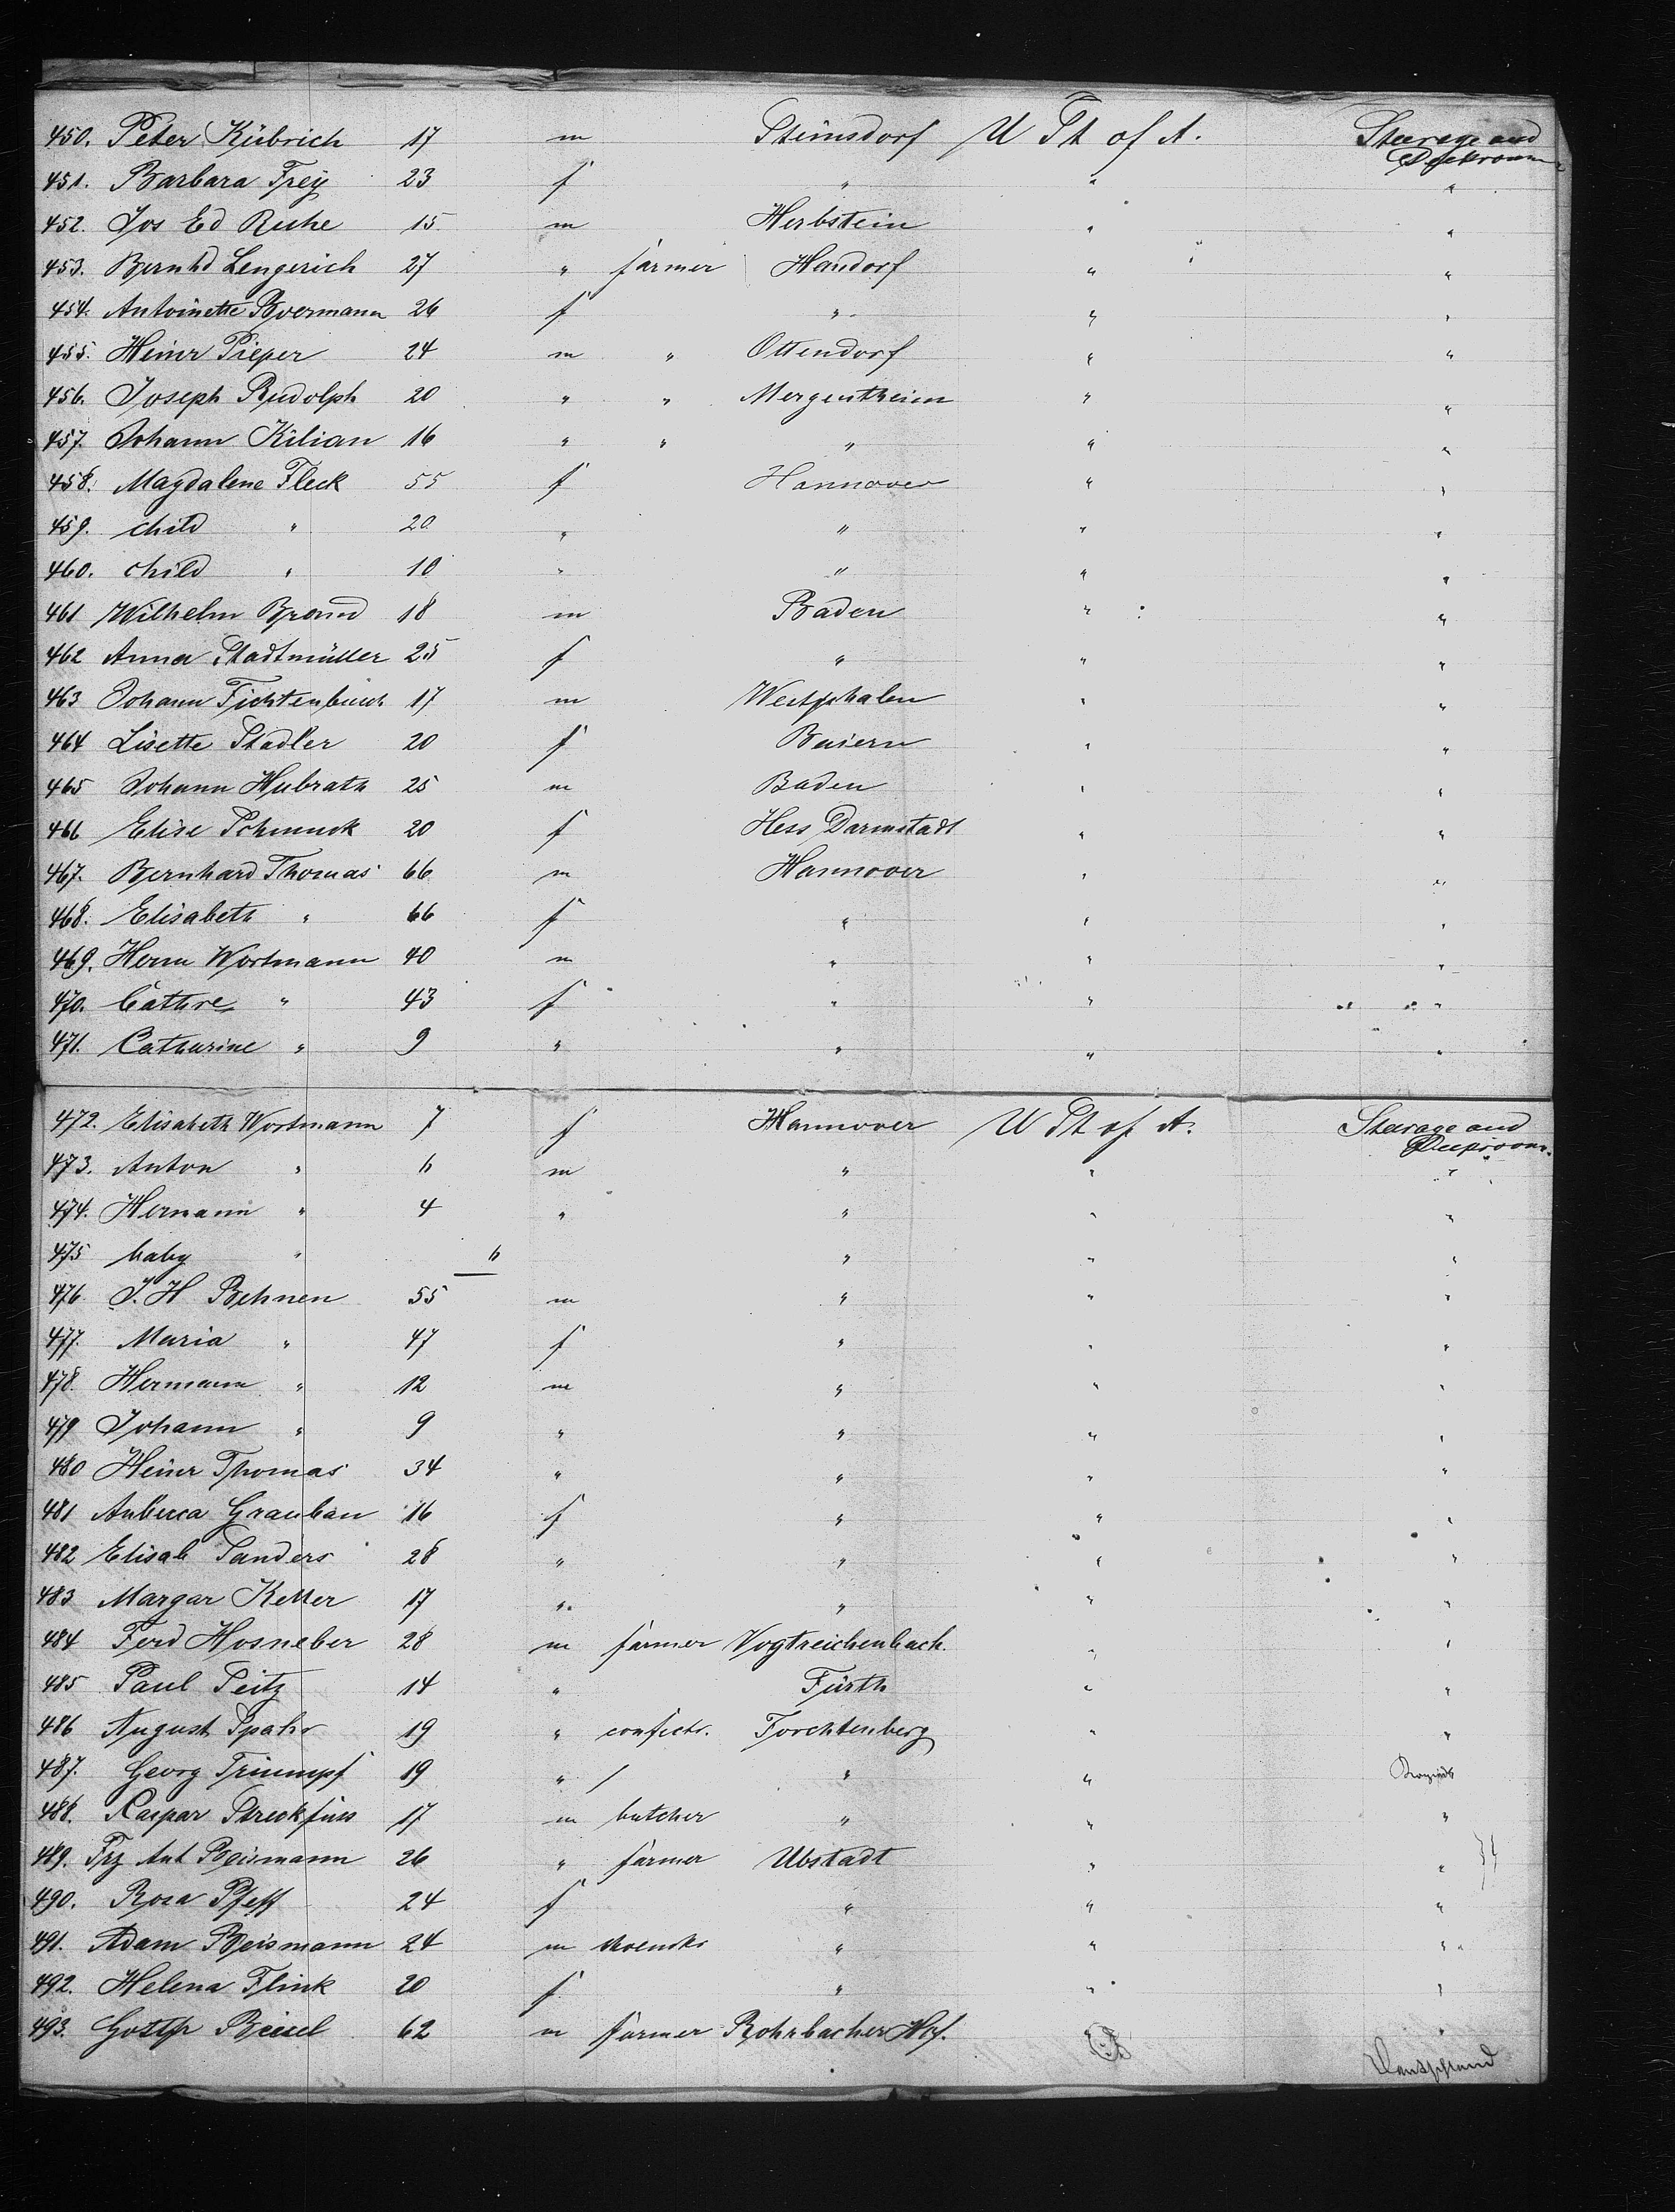 450. Peter Kübrich 17 m Steinsdorf U St of A. Steerage and Deckroom
451. Barbara Frey 23 f " " "
452. Jos Ed Ruhe 15 m Herbstein " "
453. Bernhd Lengerich 27 " farmer Handorf " "
454. Antoinette Bvermann 26 f " " "
455. Heinr Pieper 24 m " Ottendorf " "
456. Joseph Rudolph 20 " " Mergentheim " "
457. Johann Kilian 16 " " " " "
458. Magdalene Fleck 55 f Hannover " "
459. child " 20 " " " "
460. child " 10 " " " "
461 Wilhelm Brand 18 m Baden " "
462 Anna Stadtmüller 25 f " " "
463 Johann Fichtenbusch 17 m Westphalen " "
464 Lisette Stadler 20 f Baiern " "
465 Johann Hubrath 25 m Baden " "
466 Elise Schmuck 20 f Hess Darmstadt " "
467. Bernhard Thomas 66 m Hannover " "
468. Elisabeth " 66 f " " "
469. Herm Wortmann 40 m " " "
470. Cathre " 43 f " " "
471. Catharine " 9 " " " "
472. Elisabeth Wortmann 7 f Hannover U St of A. Steerage and Deckroom.
473. Anton " 6 m " " "
474. Hermann " 4 " " " "
475 baby " 6 " " "
476. J. H Behnen 55 m " " "
477. Maria " 47 f " " "
478. Hermann " 12 m " " "
479 Johann " 9 " " " "
480 Heinr Thomas 34 " " " "
481 Grauban 16 f " " "
482 Elisab Sanders 28 " " " "
483 Margar Ketter 17 " " " "
484 Ferd Hosneber 28 m farmer Vogtreichenbach " "
485 Paul Seitz 14 " Fürth " "
486 August Spahr 19 " confectr. Forchtenberg " "
487. Georg Triumpf 19 " / " "
488. Kaspar Streckfuss 17 m butcher " " "
489. Frz Ant Beismann 26 " farmer Ubstadt " "
490. Rosa Pfeff 24 f " " "
491. Adam Beismann 24 m " " "
492. Helena Flink 20 f " " "
493. Gottfr Beisel 62 m farmer Rohrbacher Hof. "